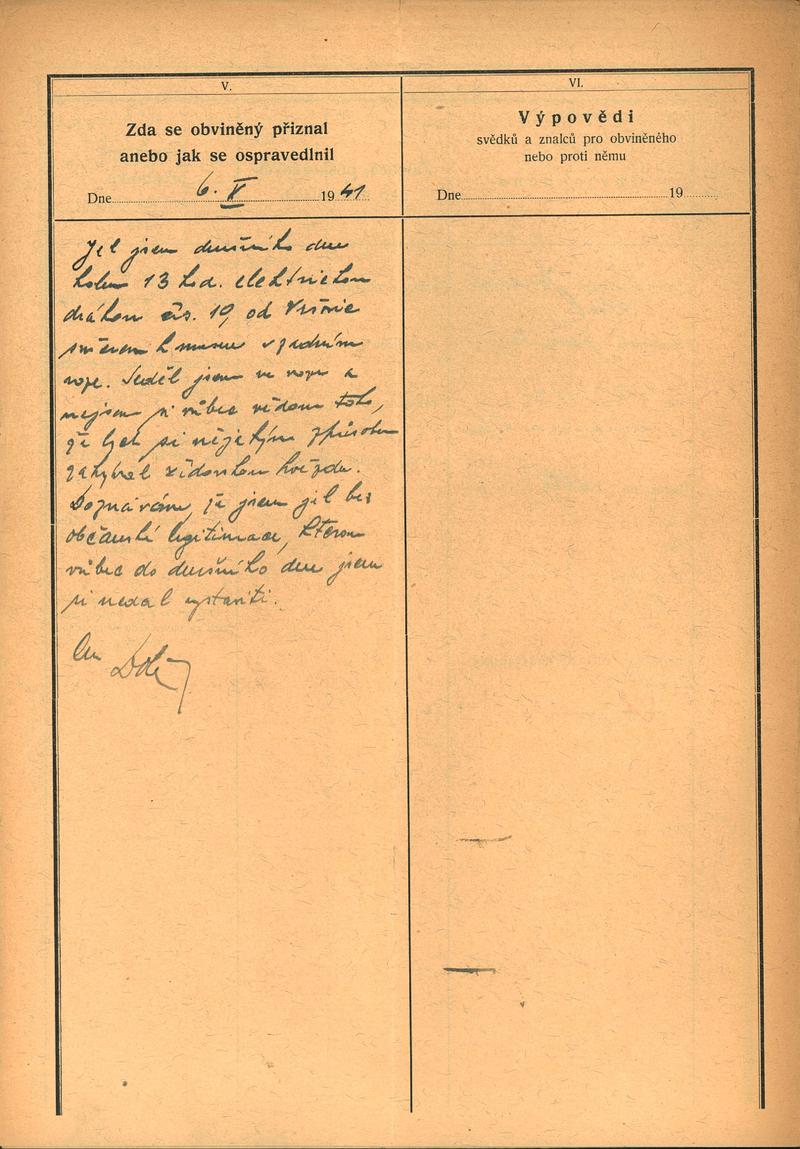 V.
Zda se obviněný přiznal
anebo jak se ospravedlnil
Dne 6. X 1941
Jel jsem dnešního dne
kolem 13 hod. elektrickou
dráhou čís. 19, od Vršovic
směrem k museu v zadním
voze. Seděl jsem ve voze a
nejsem si vůbec vědom toho,
že bych si nějakým způsobem
zakrýval židovskou hvězdu.
Doznávám, že jsem jel bez
občanské legitimace, kterou
vůbec do dnešního dne jsem
si nedal vystaviti.
VI.
Výpovědi
svědků a znalců pro obviněného
nebo proti němu
Dne 19